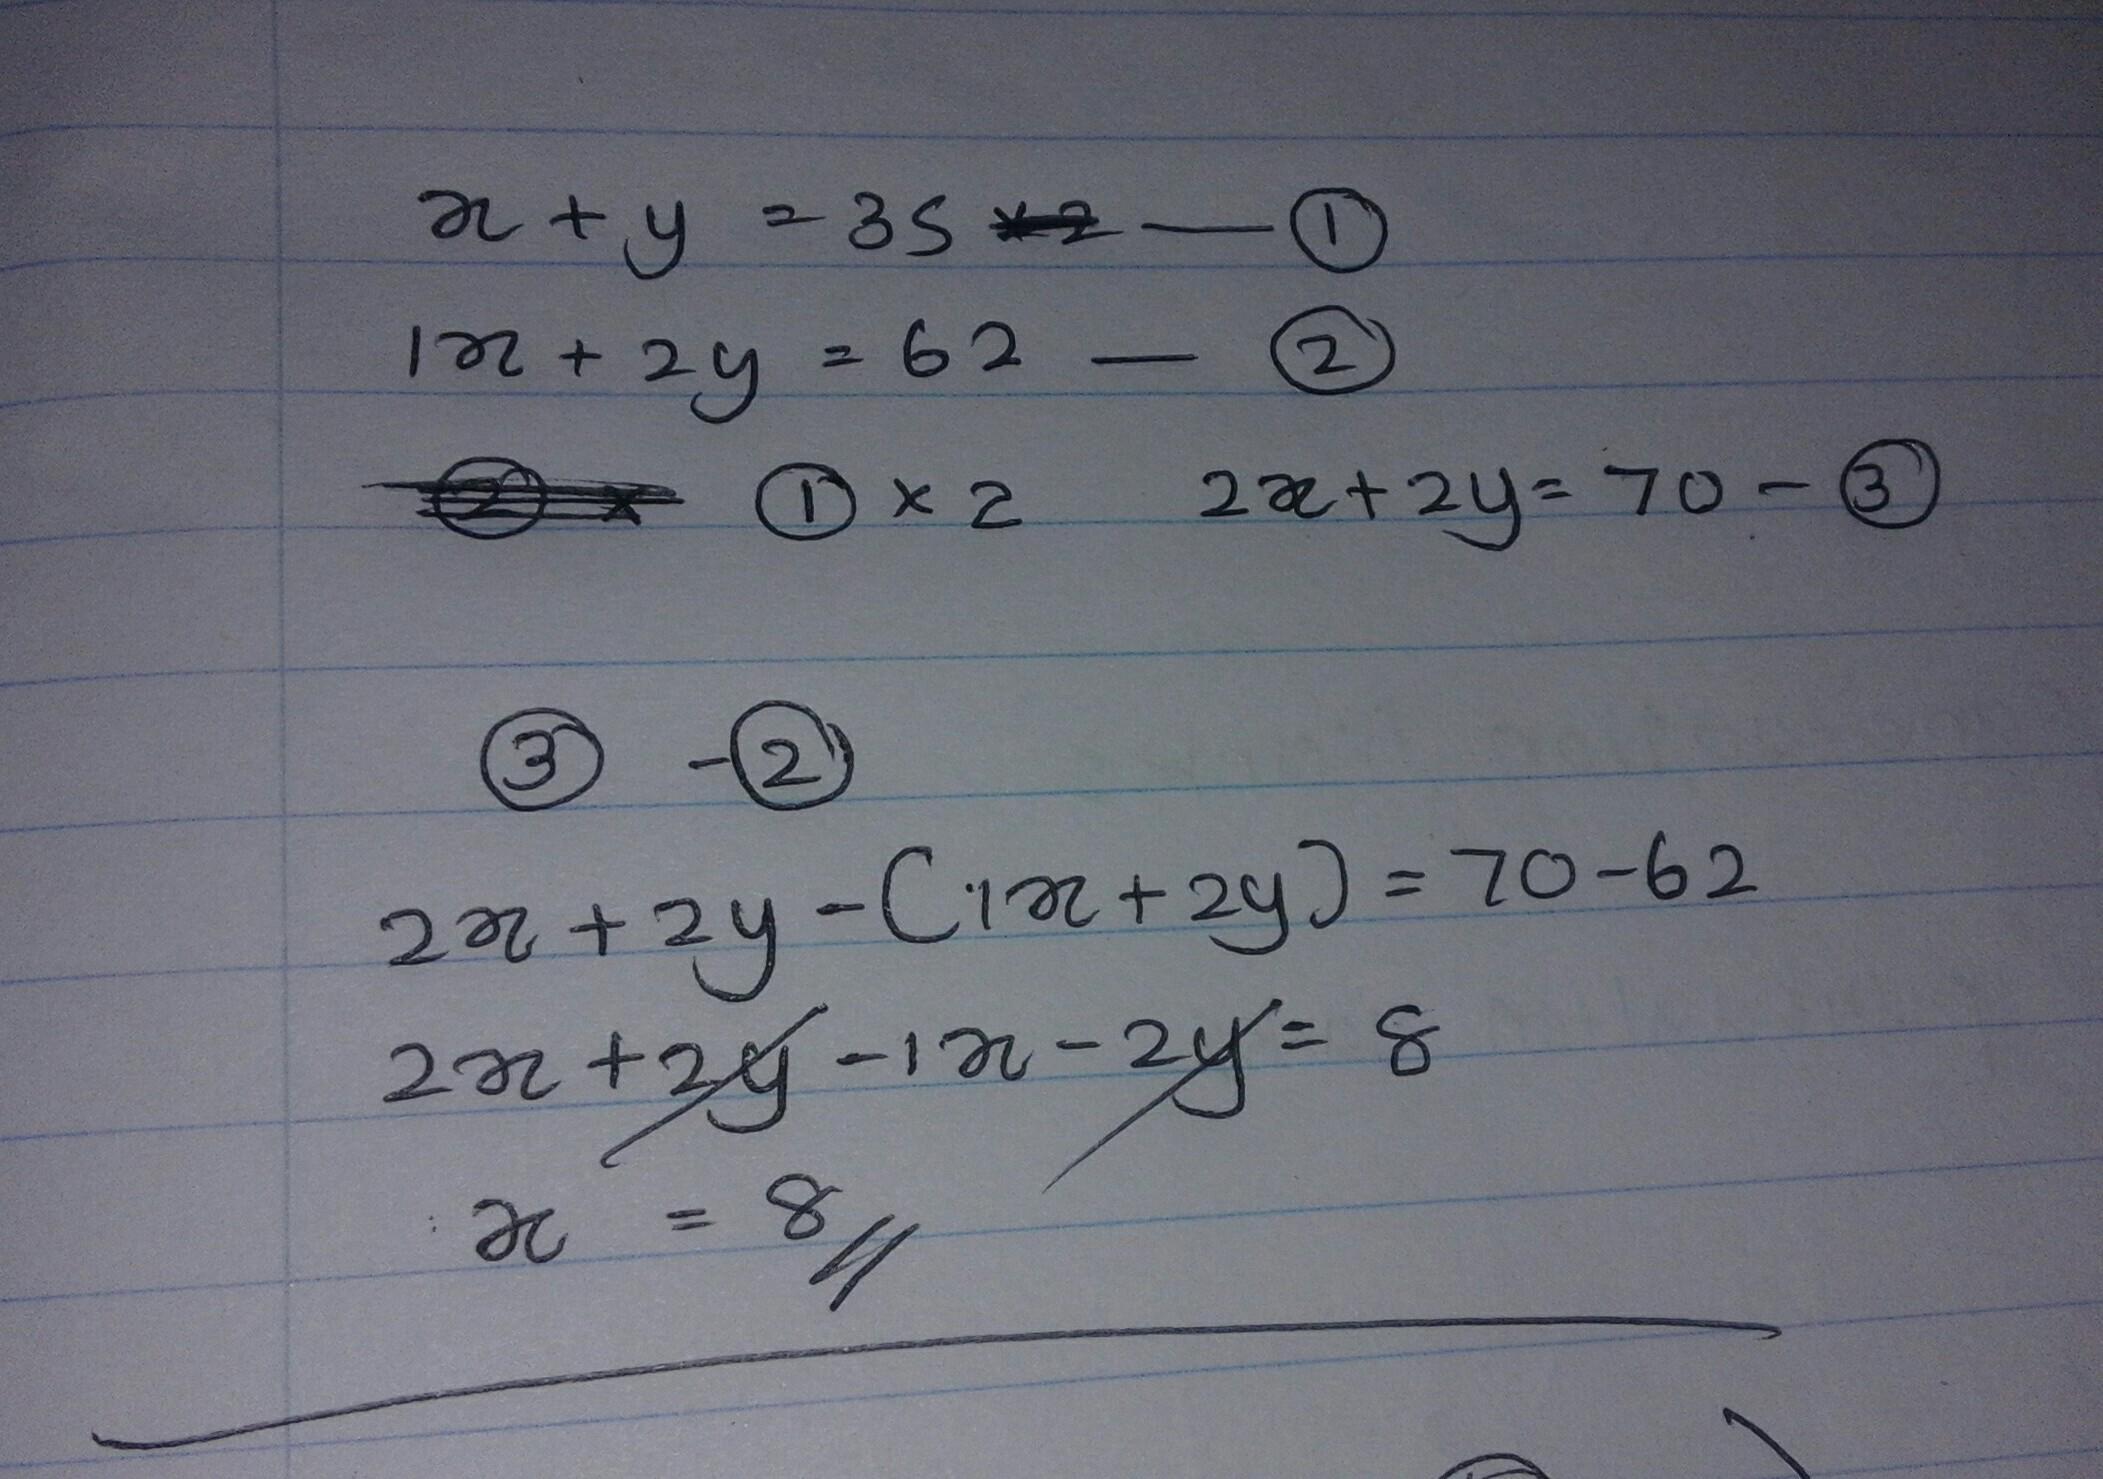 x + y = 35 — ①
1x + 2y = 62 — ②
① × 2 2x + 2y = 70 - ③
③ - ②
2x + 2y - (1x + 2y) = 70 - 62
2x + 2y - 1x - 2y = 8
x = 8